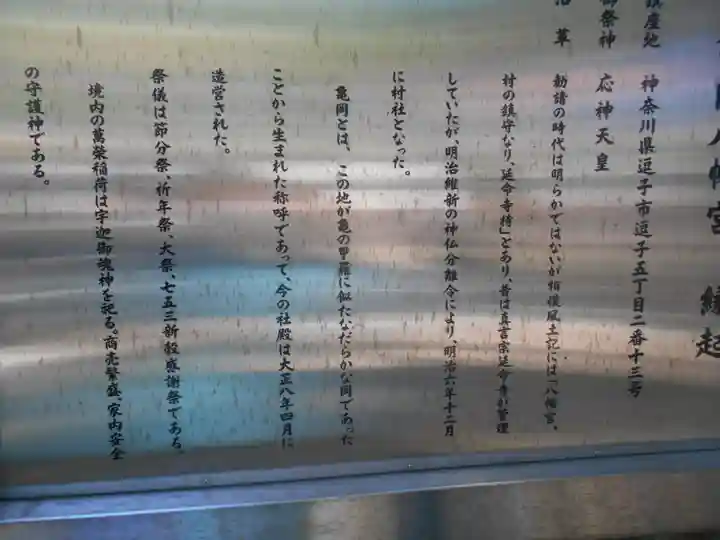 岡八幡宮 縁起
鎮座地 神奈川県逗子市逗子五丁目二番十三号
御祭神 応神天皇
沿革 勧請の時代は明らかではないが相模風土記には「八幡宮、
村の鎮守なり、延命寺持」とあり、昔は真言宗延命寺が管理
していたが、明治維新の神仏分離令により、明治六年十二月
に村社となった。
亀岡とは、この地が亀の甲羅に似たなだらかな岡であった
ことから生まれた称呼であって、今の社殿は大正八年四月に
造営された。
祭儀は節分祭、祈年祭、大祭、七五三新穀感謝祭である。
境内の萬栄稲荷は宇迦御魂神を祀る。商売繁盛、家内安全
の守護神である。